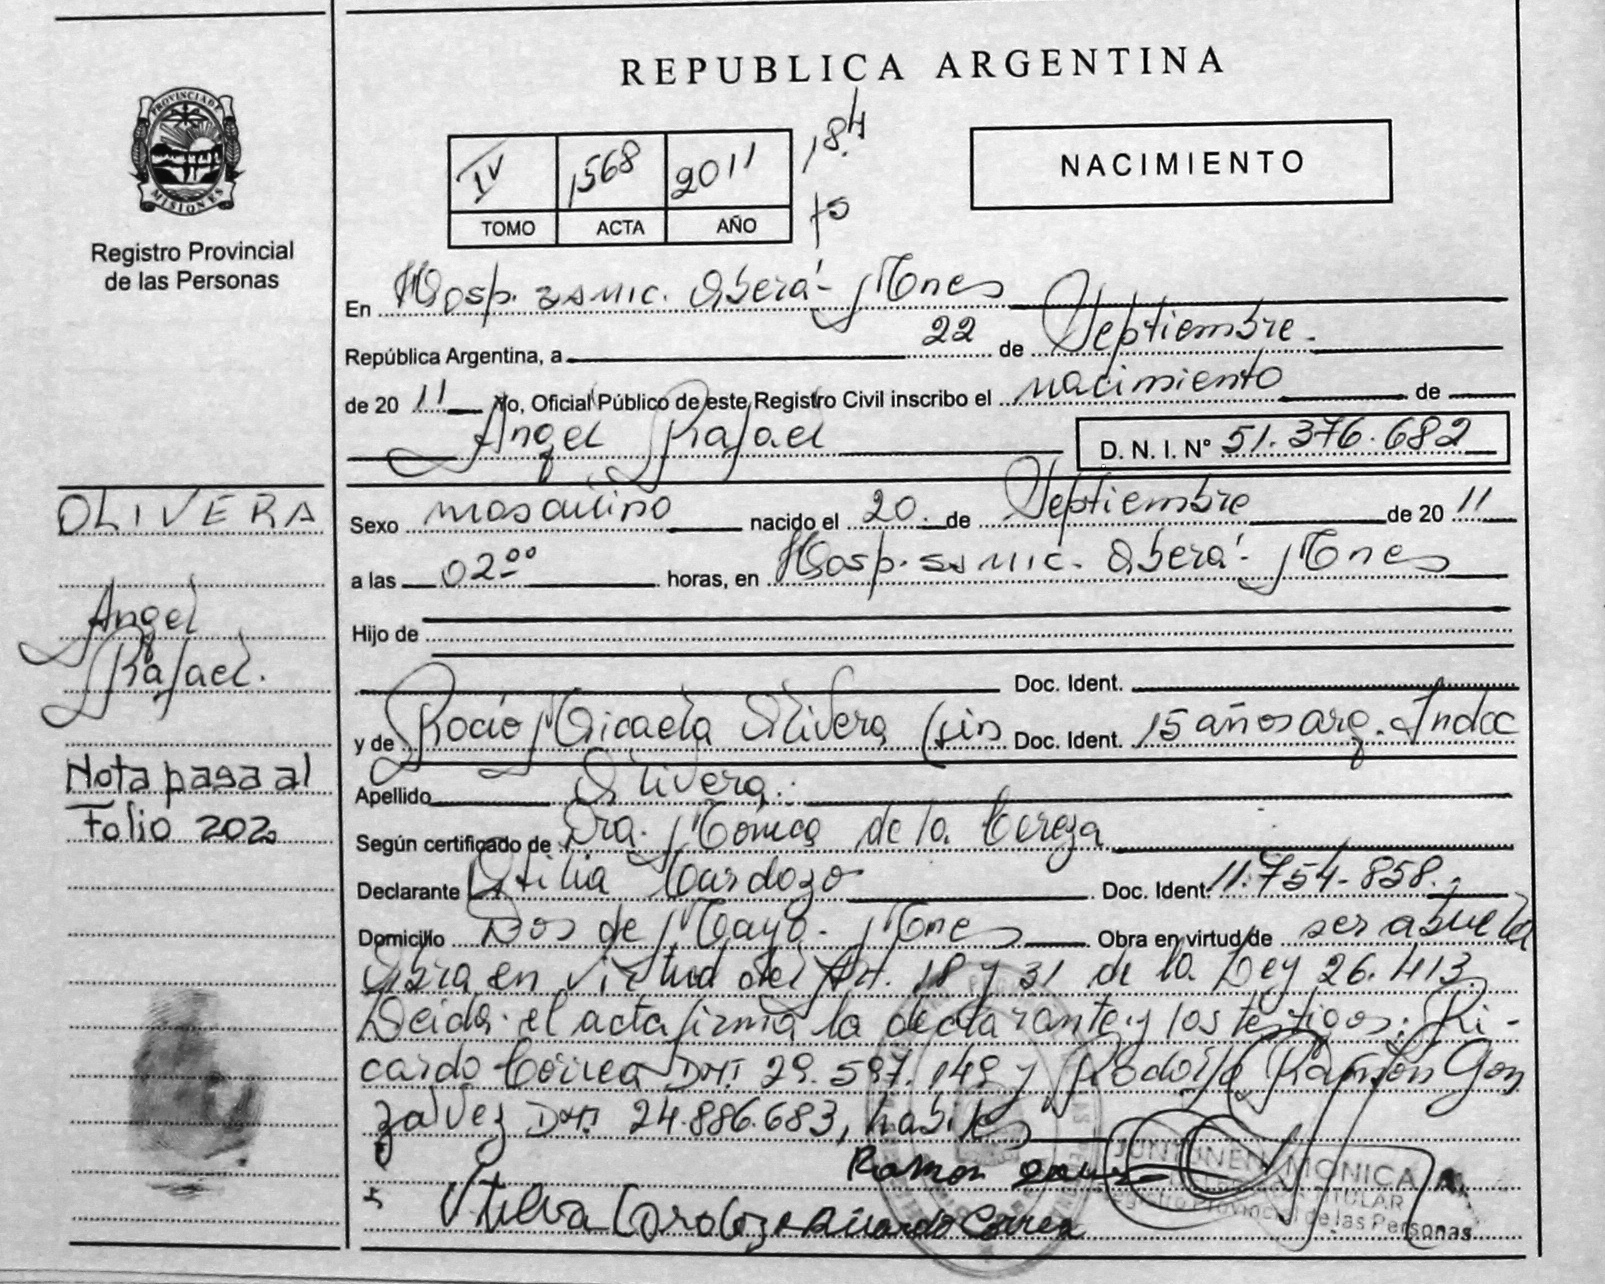 REPUBLICA ARGENTINA
PROVINCIA DE
MISIONES
Registro Provincial
de las Personas
IV 1568 2011
TOMO ACTA AÑO
NACIMIENTO
En Hosp. SAMIC. Oberá- Mnes
República Argentina, a 22 de Septiembre.
de 20 11 Yo, Oficial Público de este Registro Civil inscribo el nacimiento de
Angel Rafael D. N. I. N° 51.376.682
OLIVERA
Sexo masculino nacido el 20. de Septiembre de 20 11
a las 02°° horas, en Hosp. SAMIC. Oberá- Mnes
Angel
Rafael.
Hijo de
Doc. Ident.
y de Rocío Micaela Olivera (sin Doc. Ident. 15 años arg. Indoc
Nota pasa al
Folio 202
Apellido Olivera.
Según certificado de Dra. Mónica de la
Declarante Otilia Cardozo Doc. Ident. 11.754-858.
Domicilio Dos de Mayo- Mnes Obra en virtud de ser abuela
Obra en virtud del Art. 18 y 31 de la Ley 26.413.
Leída el acta firma la declarante y los testigos: Ri-
cardo Correa DNI. 29.597.149 y Rodolfo Ramón Gon
zalvez DNI 24.886.683, habiles
Ramon
JUNTUNEN MONICA A.
TITULAR
Registro Provincial de las Personas
Ricardo Correa